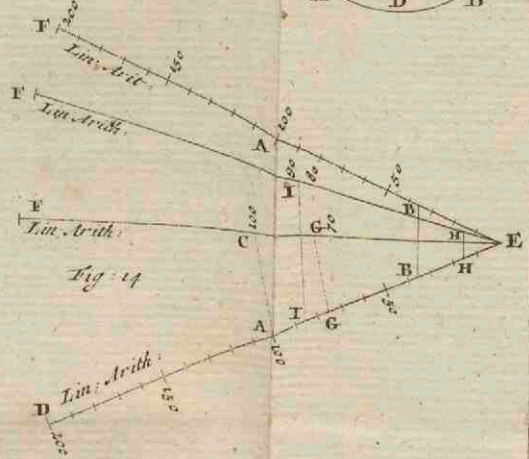 D B
F 200
Lin: Arit
150
100
A
F
Lin: Arith:
I 90 80
50
B
F
Lin: Arith:
100
C
G 70
H
E
Fig: 14
B
H
50
I
G
A
100
Lin: Arith:
150
D
200